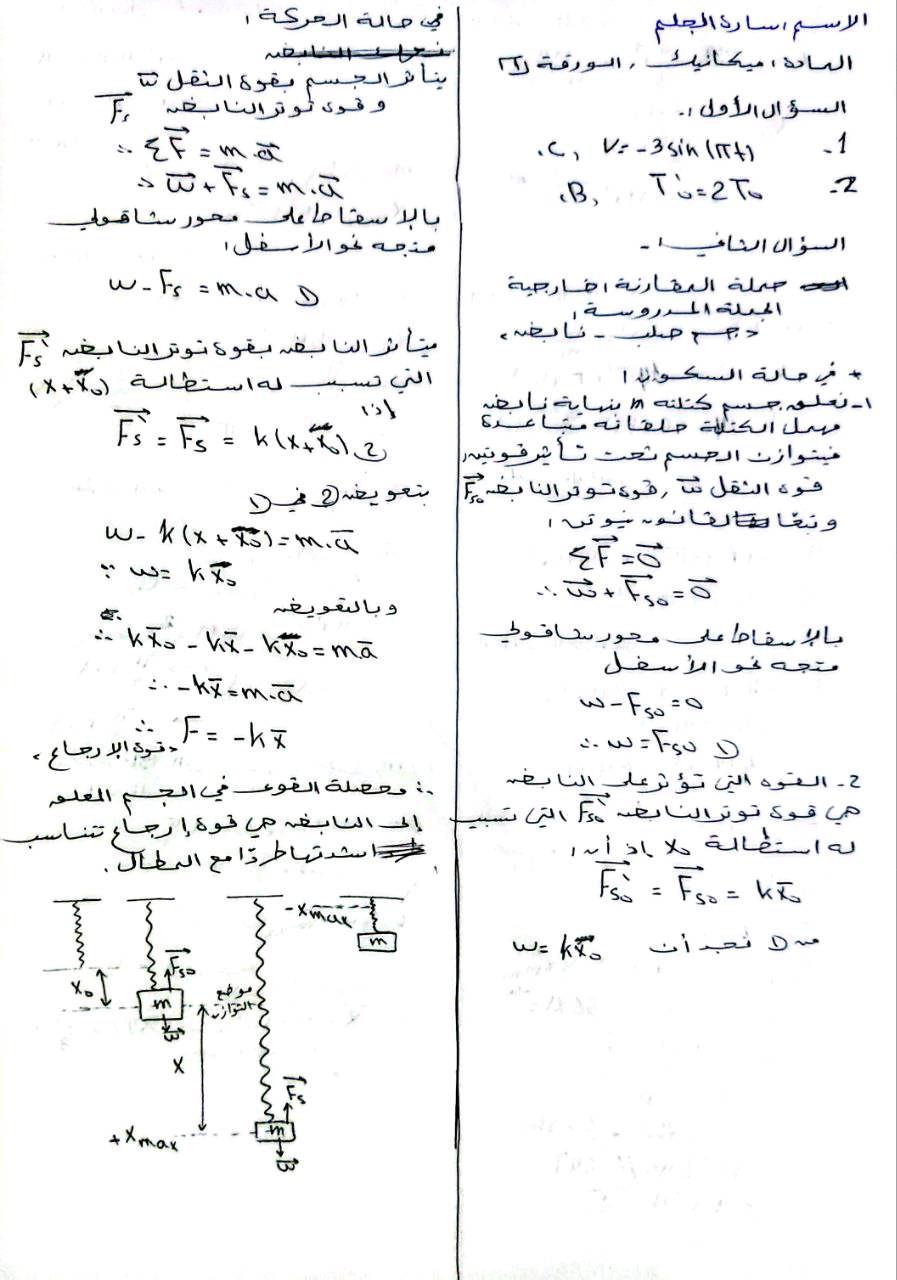 الاسم: سارة المجلم
المادة: ميكانيك، الورقة 1
السؤال الأول:
1- C, V = -3 sin(πt)
2- B, T₀' = 2T₀
السؤال الثاني:-
جملة المقارنة: خارجية
الجملة المدروسة:
جسم صلب - نابض
* في حالة السكون:
1- نعلق جسم كتلته m بنهاية نابض
مهمل الكتلة حلقاته متباعدة
فيتوازن الجسم تحت تأثير قوتين:
قوة الثقل w⃗, قوة توتر النابض F⃗s₀
وتبعًا لقانون نيوتن:
ΣF⃗ = 0⃗
∴ w⃗ + F⃗s₀ = 0⃗
بالإسقاط على محور شاقولي
متجه نحو الأسفل
w - Fs₀ = 0
∴ w = Fs₀ ①
2- القوة التي تؤثر على النابض
هي قوة توتر النابض F⃗s₀' التي تسبب
له استطالة x₀ إذ أن:
F⃗s₀' = F⃗s₀ = kx̄₀
من ① نجد أن w = kx̄₀
في حالة الحركة:
يتأثر الجسم بقوة الثقل w⃗
وقوى توتر النابض F⃗s
∴ ΣF⃗ = m.a⃗
∴ w⃗ + F⃗s = m.a⃗
بالإسقاط على محور شاقولي
متجه نحو الأسفل:
w - Fs = m.a ①
يتأثر النابض بقوة توتر النابض F⃗s'
التي تسبب له استطالة (x + x̄₀)
إذا
F⃗s' = F⃗s = k(x + x̄₀) ②
بتعويض ② في ①
w - k(x + x̄₀) = m.ā
∵ w = kx̄₀
وبالتعويض
∴ kx̄₀ - kx̄ - kx̄₀ = mā
∴ -kx̄ = m.ā
∴ F = -kx̄ "قوة الإرجاع"
∴ محصلة القوى في الجسم المعلق
إلى النابض هي قوة إرجاع تتناسب
شدتها طردًا مع المطال.
-Xmax
m
F⃗s₀
x₀
m
موضع
التوازن
w⃗
x
F⃗s
+Xmax
m
w⃗